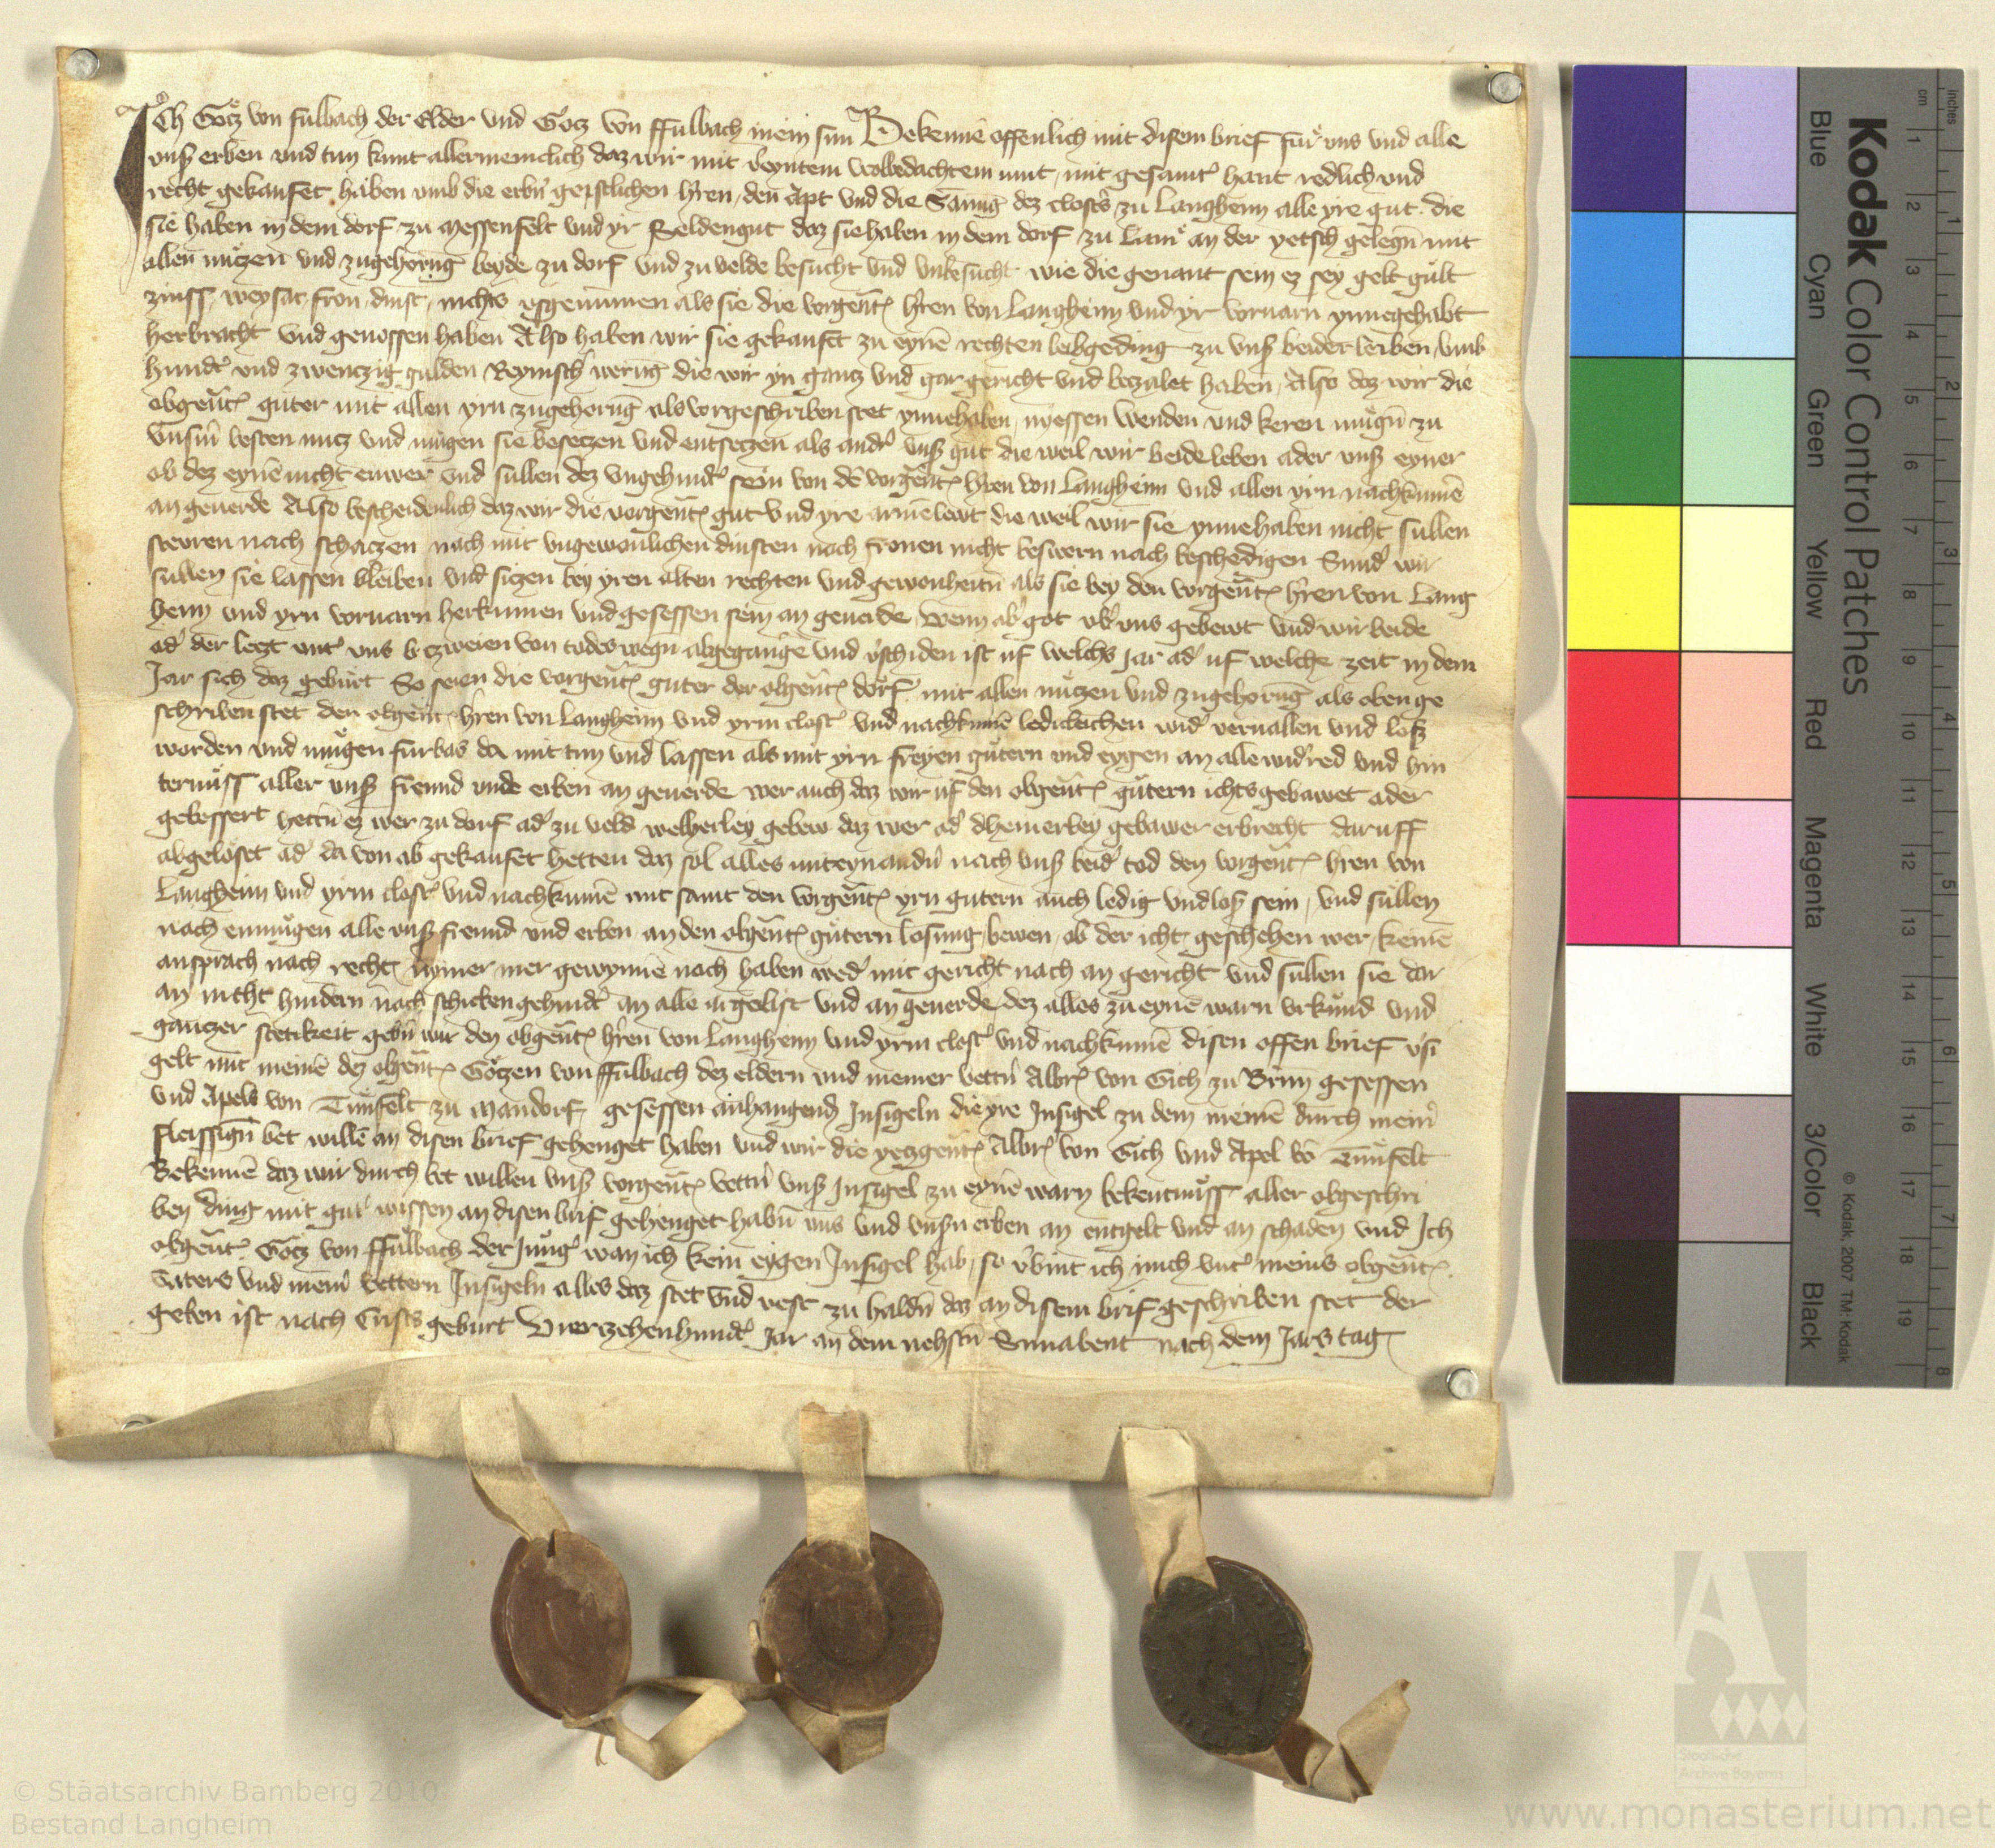 Ich Götz von fulbach der Elder vnd Götz von ffulbach mein sun Bekenne offenlich mit disem brief für vns vnd alle
vnß erben vnd tun kunt allermeinclich daz wir mit vereyntem wolbedachtem mut, mit gesamt' hant redlich vnd
recht gekaufet haben vmb die erbn geistlichen hren, den Apt vnd die Samug dez closters zu Langheim alle yre gut die
sie haben in dem dorf zu Messenfelt vnd yr Seldengut daz sie haben in dem dorf zu an der yetsch gelegn mit
allen nützen vnd zugehorug beyde zu dorf vnd zu velde besucht vnd vnbesucht wie die genant sein ez sey gelt gült
zinss, weysat, fron, dinst, nichts vsgenumen als sie die vorgent hren von Langheim vnd yr voruarn ynnegehabt
herbracht vnd genossen haben Also haben wir sie gekauft zu eyne rechten leibgeding zu vnß beider leiben, vmb
hundt' vnd zwenczig gulden Reynisch werug die wir yn gantz vnd gar gericht vnd beczalet haben, Also daz wir die
obgent güter mit allen yrn zugehorug als vorgeschriben stet ynnehaben, nyessen wenden vnd keren mügn zu
vnsm besten nutz vnd mügen sie besetzen vnd entsetzen als and' vnß gut die weil wir beide leben ader vnß eyner
ob dez eyne nicht enwer vnd sullen dez vngehindt' sein von de vorgent hren von Langheim vnd allen yrn nachkume
an geuerde Also bescheidenlich daz wir die vorgent gut vnd yre arme lewt die weil wir sie ynnehaben nicht sullen
stewren noch schatzen noch mit vngewonlichen dinsten noch fronen nicht beswern noch beschedigen Sund' wir
sullen sie lassen bleiben vnd sitzen bey yren alten rechten vnd gewonheitn als sie bey den vorgent hren von Lang
heim vnd yrn voruarn herkumen vnd gesessen sein an geuerde, Wenn ab' got vb' vns gebewt vnd wir beide
ad' der letzt vnt' vns zweien von todes wegn abgegange vnd vschiden ist uf welchs jar ad' uf welche zeit in dem
Jar sich daz gebürt So seien die vorgent güter der obgent dorf mit allen nützen vnd zugehorug als oben ge
schriben stet den obgent hren von Langheim vnd yrm clost' vnd nachkume ledicleichen wid' veruallen vnd loß
worden vnd mügen fürbas da mit tun vnd lassen als mit yrn freyen gütern vnd eygen an alle widred vnd hin
ternüss aller vnß freund vnde erben an geuerde wer auch daz wir uf den obgent gütern ichts gebawet ader
gebessert hettn ez wer zu dorf ad' zu veld welherley gebew daz wer ad' dheinerley gebawer erbrecht daruff
abgelöset ad' da von ab gekaufet hetten daz sol alles mit eynandn nach vnß beid' tod den vorgent hren von
Langheim vnd yrm clost' vnd nachkume mit samt den vorgent yrn gütern auch ledig vnd loß sein, vnd süllen
noch enmügen alle vnß freund vnd erben an den obgent gütern losung, bewen, ob der icht geschehen wer, keine
ansprach noch recht nymer mer gewynne noch haben wed' mit gericht noch an gericht vnd süllen sie dar
an nicht hindern noch schicken gehindt' an alle argelist vnd an geuerde, dez alles zu eyne warn vrkund vnd
gantzer stetikeit gebn wir den obgent hren von Langheim vnd yrm clost' vnd nachkume disen offen brief vsi
gelt mit meine dez obgent Götzen von ffulbach dez eldern vnd meiner vettn Albr von Gich zu Brun gesessen
vnd Apels von Tünfelt zu Mandorf gesessen anhangend Insigeln die yre Insigel zu dem meine durch meiner
fleissign bet wille an disen brief gehenget haben vnd wir die yetzgent Albr von Gich vnd Apel vo Tünfelt
Bekenne daz wir durch bet willen vnß vorgent vettn vnß Insigel zu eyne warn bekentnüss aller obgeschri
ben ding mit gut' wissen an disen brif gehenget habn vns vnd vnßn erben an entgelt vnd an schaden vnd Ich
obgent Götz von ffulbach der Jung' wan ich kein eygen Insigel hab, so vbint ich mich vnt' meins obgent
Vaters vnd mein vettern Insigeln alles daz stet vnd vest zu haldn daz an disem brif geschriben stet der
geben ist nach Crists geburt Vierzehenhundt' Jar an dem nehstn Sunabent nach dem Jarstag
Kodak Color Control Patches
Blue Cyan Green Yellow Red Magenta White 3/Color Black
© Kodak, 2007 TM: Kodak
cm 1 2 3 4 5 6 7 8 9 10 11 12 13 14 15 16 17 18 19
inches 1 2 3 4 5 6 7 8
© Staatsarchiv Bamberg 2010
Bestand Langheim
Staatliche
Archive Bayerns
www.monasterium.net